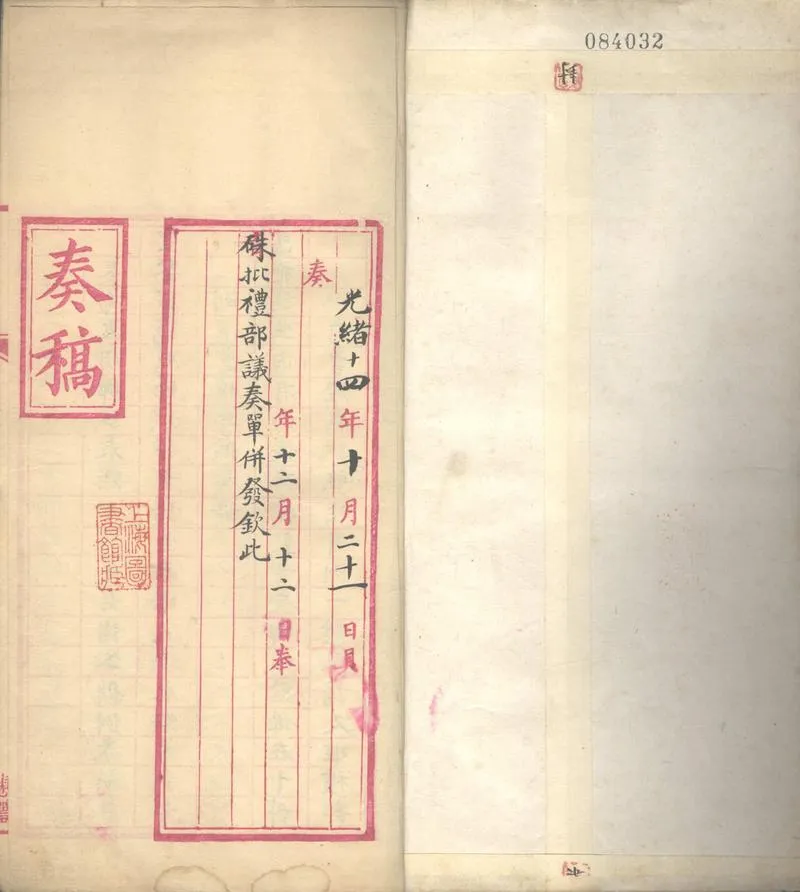 084032
光緒十四年十月二十一日具
奏
年十二月十二日奉
硃批禮部議奏單併發欽此
奏稿
上海圖書館藏